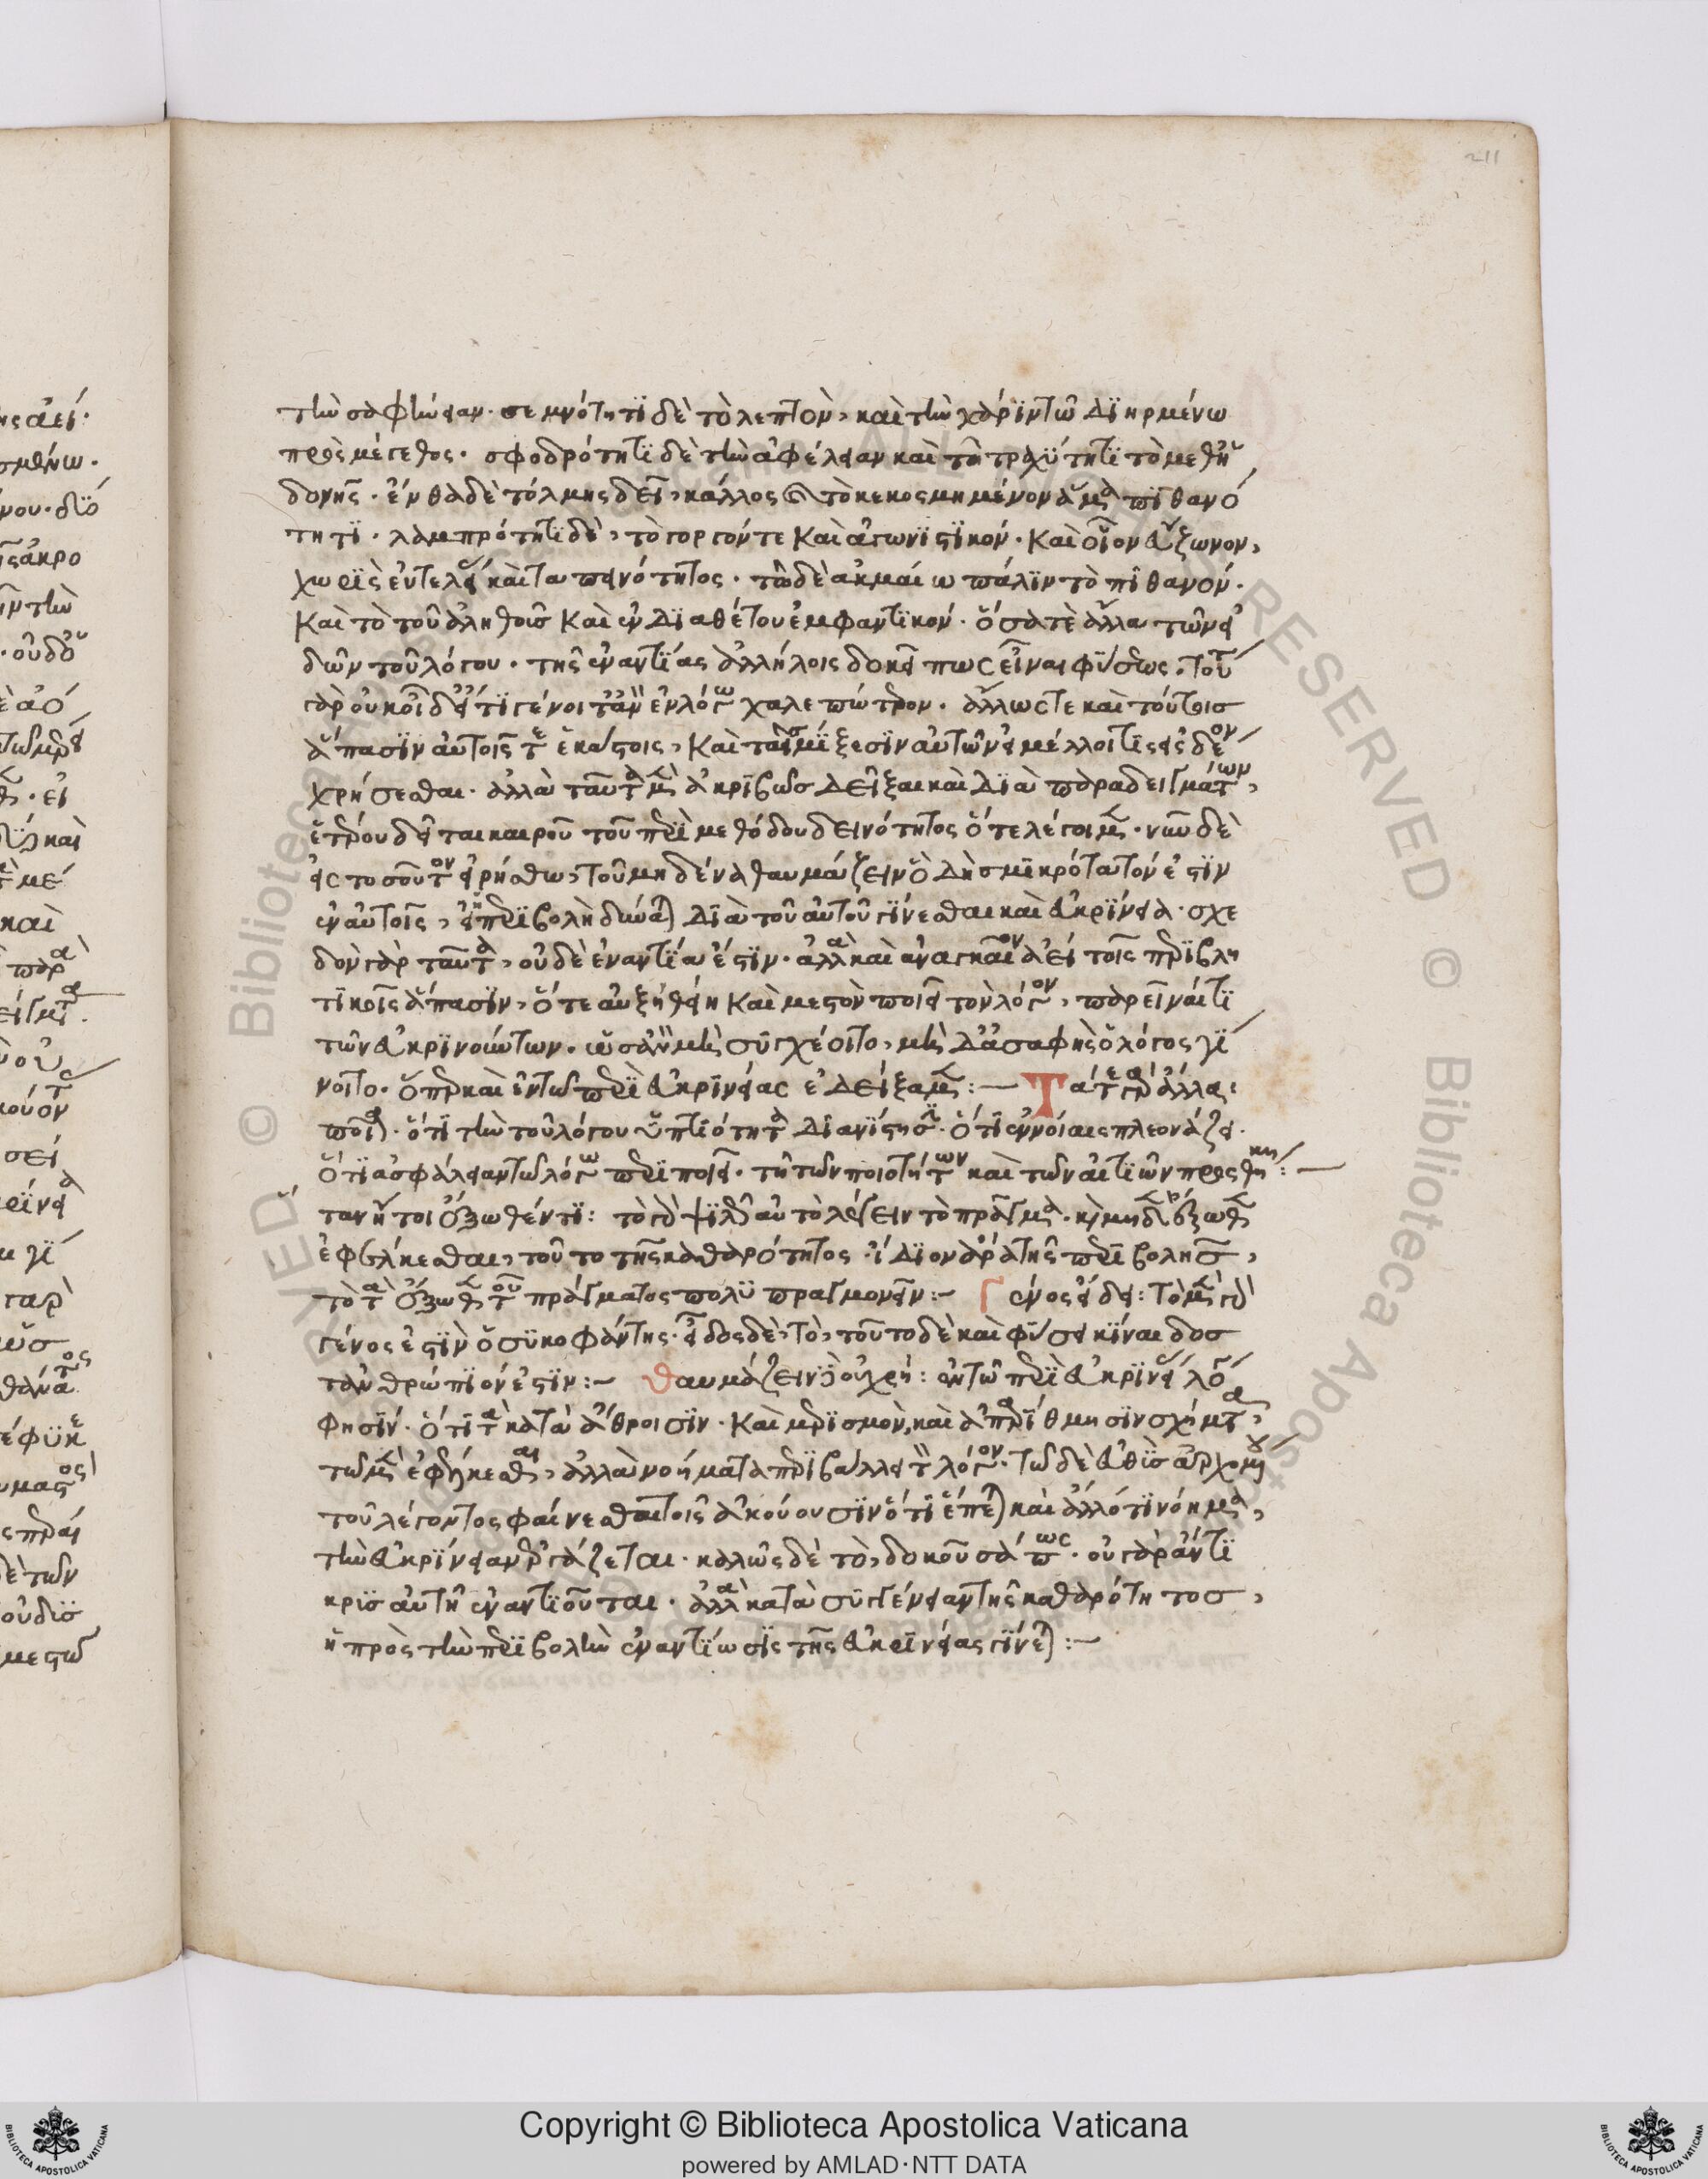 211
τὴν σαφήνειαν. σεμνότητι δὲ τὸ λεπτὸν, καὶ τὴν χάριν τῶ διηρμένω
πρὸς μέγεθος. σφοδρότητι δὲ τὴν ἀφέλειαν καὶ τῆ τραχύτητι τὸ μεθ' ἡ
δονῆς. ἐνθα δὲ τόλμης δεῖ, κάλλος καὶ τὸ κεκοσμημένον ἅμα πιθανό
τητι. λαμπρότητι δὲ, τὸ γοργόν τε καὶ ἀγωνιστικόν. καὶ οἷον εὔζωνον,
χωρὶς εὐτελεί καὶ ταπεινότητος. τῶ δὲ ἀκμαίω πάλιν τὸ πιθανόν.
καὶ τὸ τοῦ ἀληθοῦς καὶ ἐνδιαθέτου ἐμφαντικόν. ὅσα τὲ ἄλλα τῶν εἰ
δῶν τοῦ λόγου. τῆς ἐναντίας ἀλλήλοις δοκεῖ πως εἶναι φύσεως. τοῦτ
γὰρ οὐκ οἶδ' εἴ τι γένοιτ' ἂν ἐν λόγω χαλεπώτερον. ἄλλως τε καὶ τούτοις
ἅπασιν αὐτοῖς τε ἑκάστοις, καὶ ταῖς μίξεσιν αὐτῶν εἰ μέλλοι τις εἰς δέον
χρήσεσθαι. ἀλλὰ ταῦτα μὲν ἀκριβῶς δεῖξαι καὶ διὰ παραδειγμάτων,
ἑτέρου δεῖται καιροῦ τοῦ περὶ μεθόδου δεινότητος ὅτε λέγοιμεν. νῦν δὲ
εἰς τοσοῦτον εἰρήσθω, τοῦ μηδένα θαυμάζειν ὃ δὴ σμικρότατόν ἐστιν
ἐν αὐτοῖς, εἰ ἡ περιβολὴ δύναται διὰ τοῦ αὐτοῦ γίνεσθαι καὶ εὐκρίνεια. σχε
δὸν γὰρ ταῦτα, οὐδὲ ἐναντία ἐστιν. ἀλλὰ καὶ ἀναγκαῖον ἀεί τοῖς περιβλη
τικοῖς ἅπασιν, ὅτε αὐξηθείη καὶ μεστὸν ποιεῖ τὸν λόγον, παρεῖναί τι
τῶν εὐκρινούντων. ὡς ἂν μὴ συγχέοιτο, μὴ δ' ἀσαφὴς ὁ λόγος γί
νοιτο. ὅπερ καὶ ἐν τῶ περὶ εὐκρινείας ἐδείξαμεν:— Τά τε γὰρ ἄλλα
ποιεῖ. ὅτι τὴν τοῦ λόγου ὑπτιότητα διανίστησι. ὅτι ἐννοίαις πλεονάζει.
ὅτι ἀσφάλειαν τῶ λόγω περιποιεῖ. τῆ τῶν ποιοτήτων καὶ τῶν αἰτιῶν προσθήκη:—
τὸ γὰρ ψιλὸν αὐτὸ λέγειν τὸ πρᾶγμα. καὶ μηδὲν ἔξωθεν
ἐφέλκεσθαι, τοῦτο τῆς καθαρότητος. ἴδιον γάρ τῆς περιβολῆς,
τὸ τὰ ἔξωθεν τοῦ πράγματος πολυπραγμονεῖν:— Γένος εἴδει: τὸ μὲν γὰρ
γένος ἐστὶν ὁ συκοφάντης. εἶδος δὲ, τὸ, τοῦτο δὲ καὶ φύσει κίναδος
τἀνθρώπιόν ἐστιν:— θαυμάζειν οὐ χρή: ἐν τῶ περὶ εὐκρινεί λό
φησίν. ὅτι τὰ κατὰ ἄθροισιν. καὶ μερισμὸν, καὶ ἀπαρίθμησιν σχήματα,
τῶ μὲν ἐφέλκεσθαι, ἀλλὰ νοήματα περιβάλλει τὸν λόγον. τῶ δὲ εὐθὺς ἀρχομένου
τοῦ λέγοντος φαίνεσθαι τοῖς ἀκούουσιν ὅτι ἕπεται καὶ ἄλλό τι νόημα,
τὴν εὐκρίνειαν ἐργάζεται. καλῶς δὲ τὸ, δοκοῦσά πως. οὐ γὰρ ἄντι
κρυς αὐτῆ ἐναντιοῦται. ἀλλὰ κατὰ συγγένειαν τῆς καθαρότητος,
ἡ πρὸς τὴν περιβολὴν ἐναντίωσις τῆς εὐκρινείας γίνεται:—
Copyright © Biblioteca Apostolica Vaticana
powered by AMLAD·NTT DATA